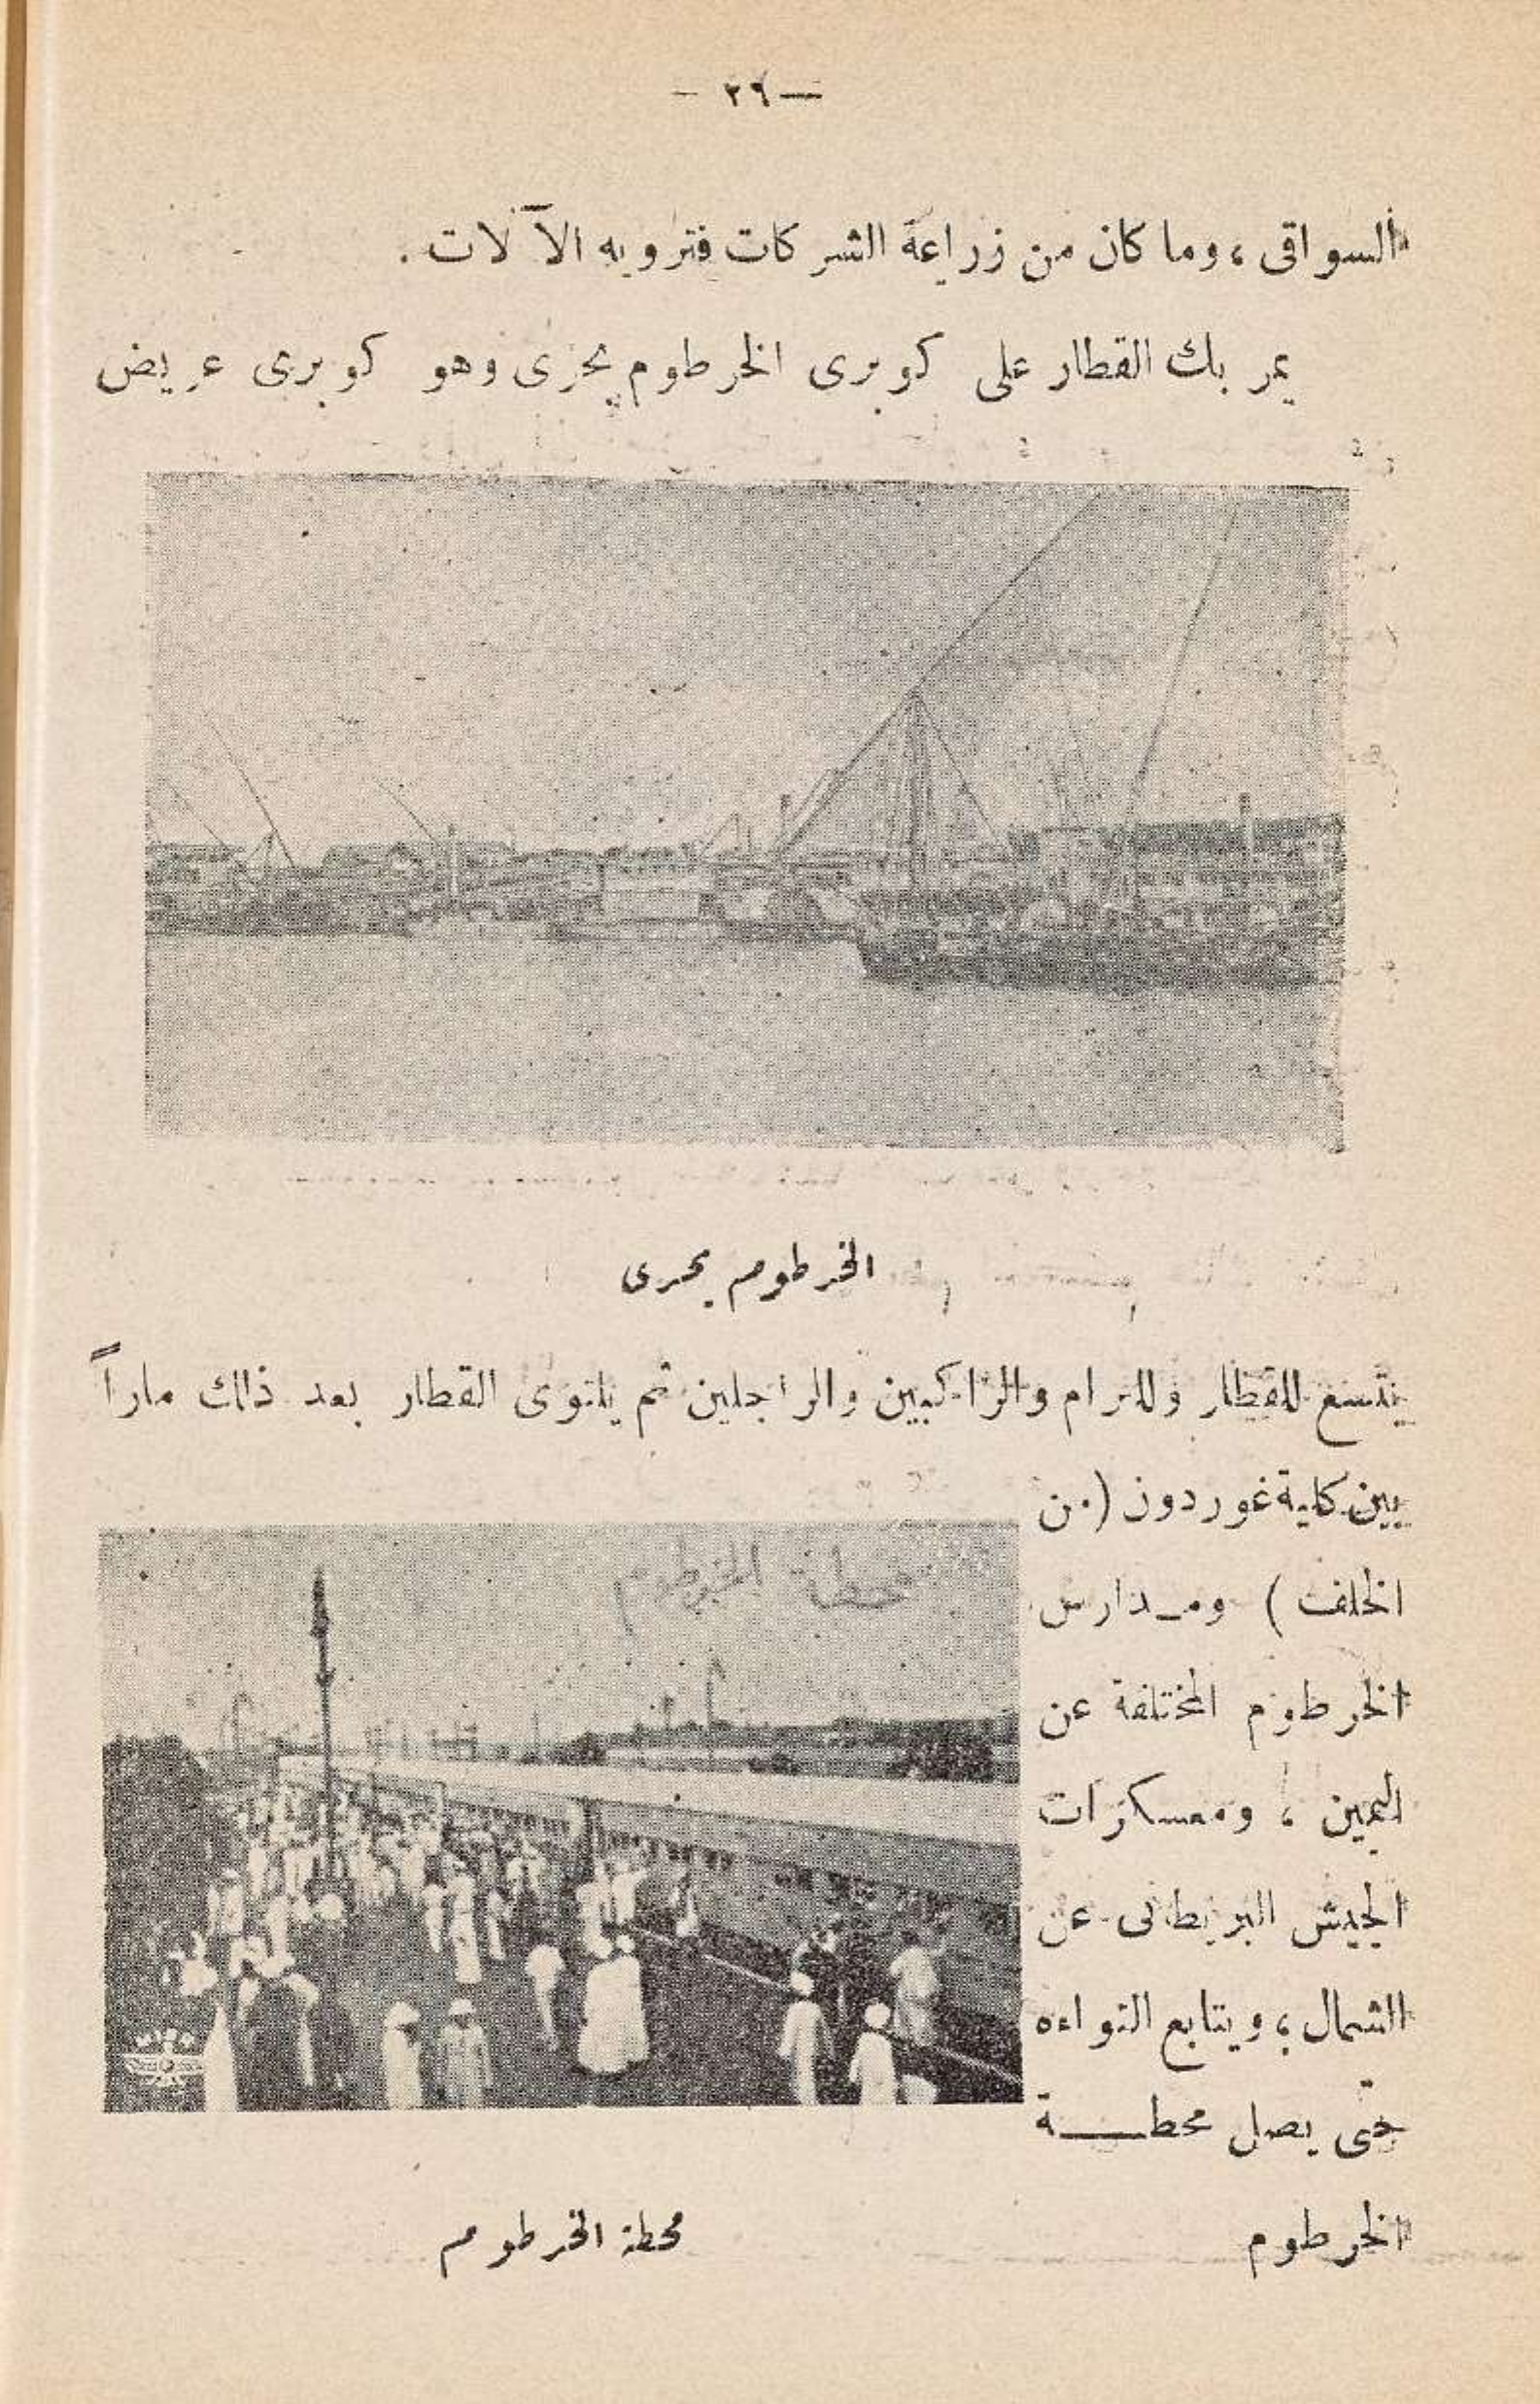 — ٢٩ —
السواقى ، وما كان من زراعة الشركات فترويه الآلات .
يمر بك القطار على كوبرى الخرطوم بحرى وهو كوبرى عريض
الخرطوم بحرى
يتسع للقطار وللترام والراكبين والراجلين ثم يلتوى القطار بعد ذلك ماراً
بين كلية غوردون (من
الخلف ) ومـدارس
الخرطوم المختلفة عن
اليمين ، ومعسكرات
الجيش البريطانى عن
الشمال ، ويتابع التواءه
حتى يصل محطـــة
الخرطوم
محطة الخرطوم
محطة الخرطوم